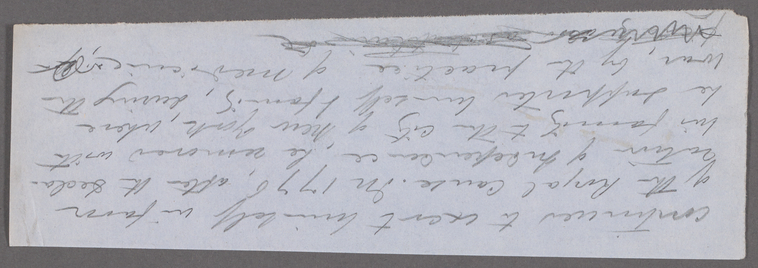 continues to exert himself in favor
of the Royal cause. In 1776, after the Decla-
ration of Independence, he removes with
his family to the city of New York, where
he supports himself & family, during the
war, by the practice of medicine.